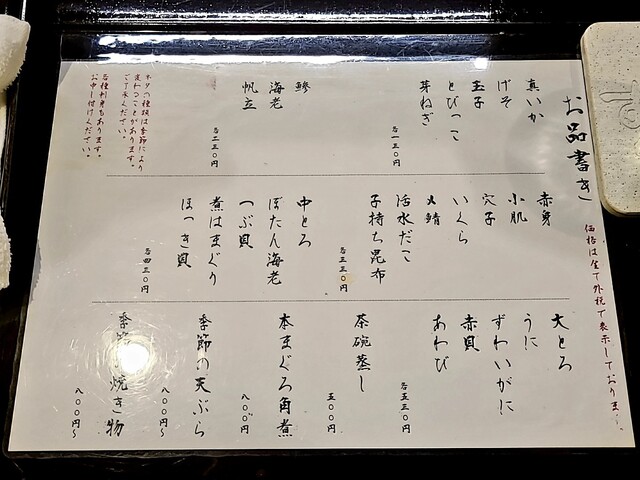 お品書き
価格は全て外税で表示しております。
真いか
げそ
玉子
とびっこ
芽ねぎ
各一三〇円
鯵
海老
帆立
各二三〇円
ネタの種類は季節により
変わることがあります。
ご了承ください。
各種お刺身もあります。
お申し付けください。
赤身
小肌
穴子
いくら
〆鯖
活水だこ
子持ち昆布
各三三〇円
中とろ
ぼたん海老
つぶ貝
煮はまぐり
ほっき貝
各四三〇円
大とろ
うに
ずわいがに
赤貝
あわび
各五三〇円
茶碗蒸し
五〇〇円
本まぐろ角煮
八〇〇円
季節の天ぷら
八〇〇円〜
季節の焼き物
八〇〇円〜